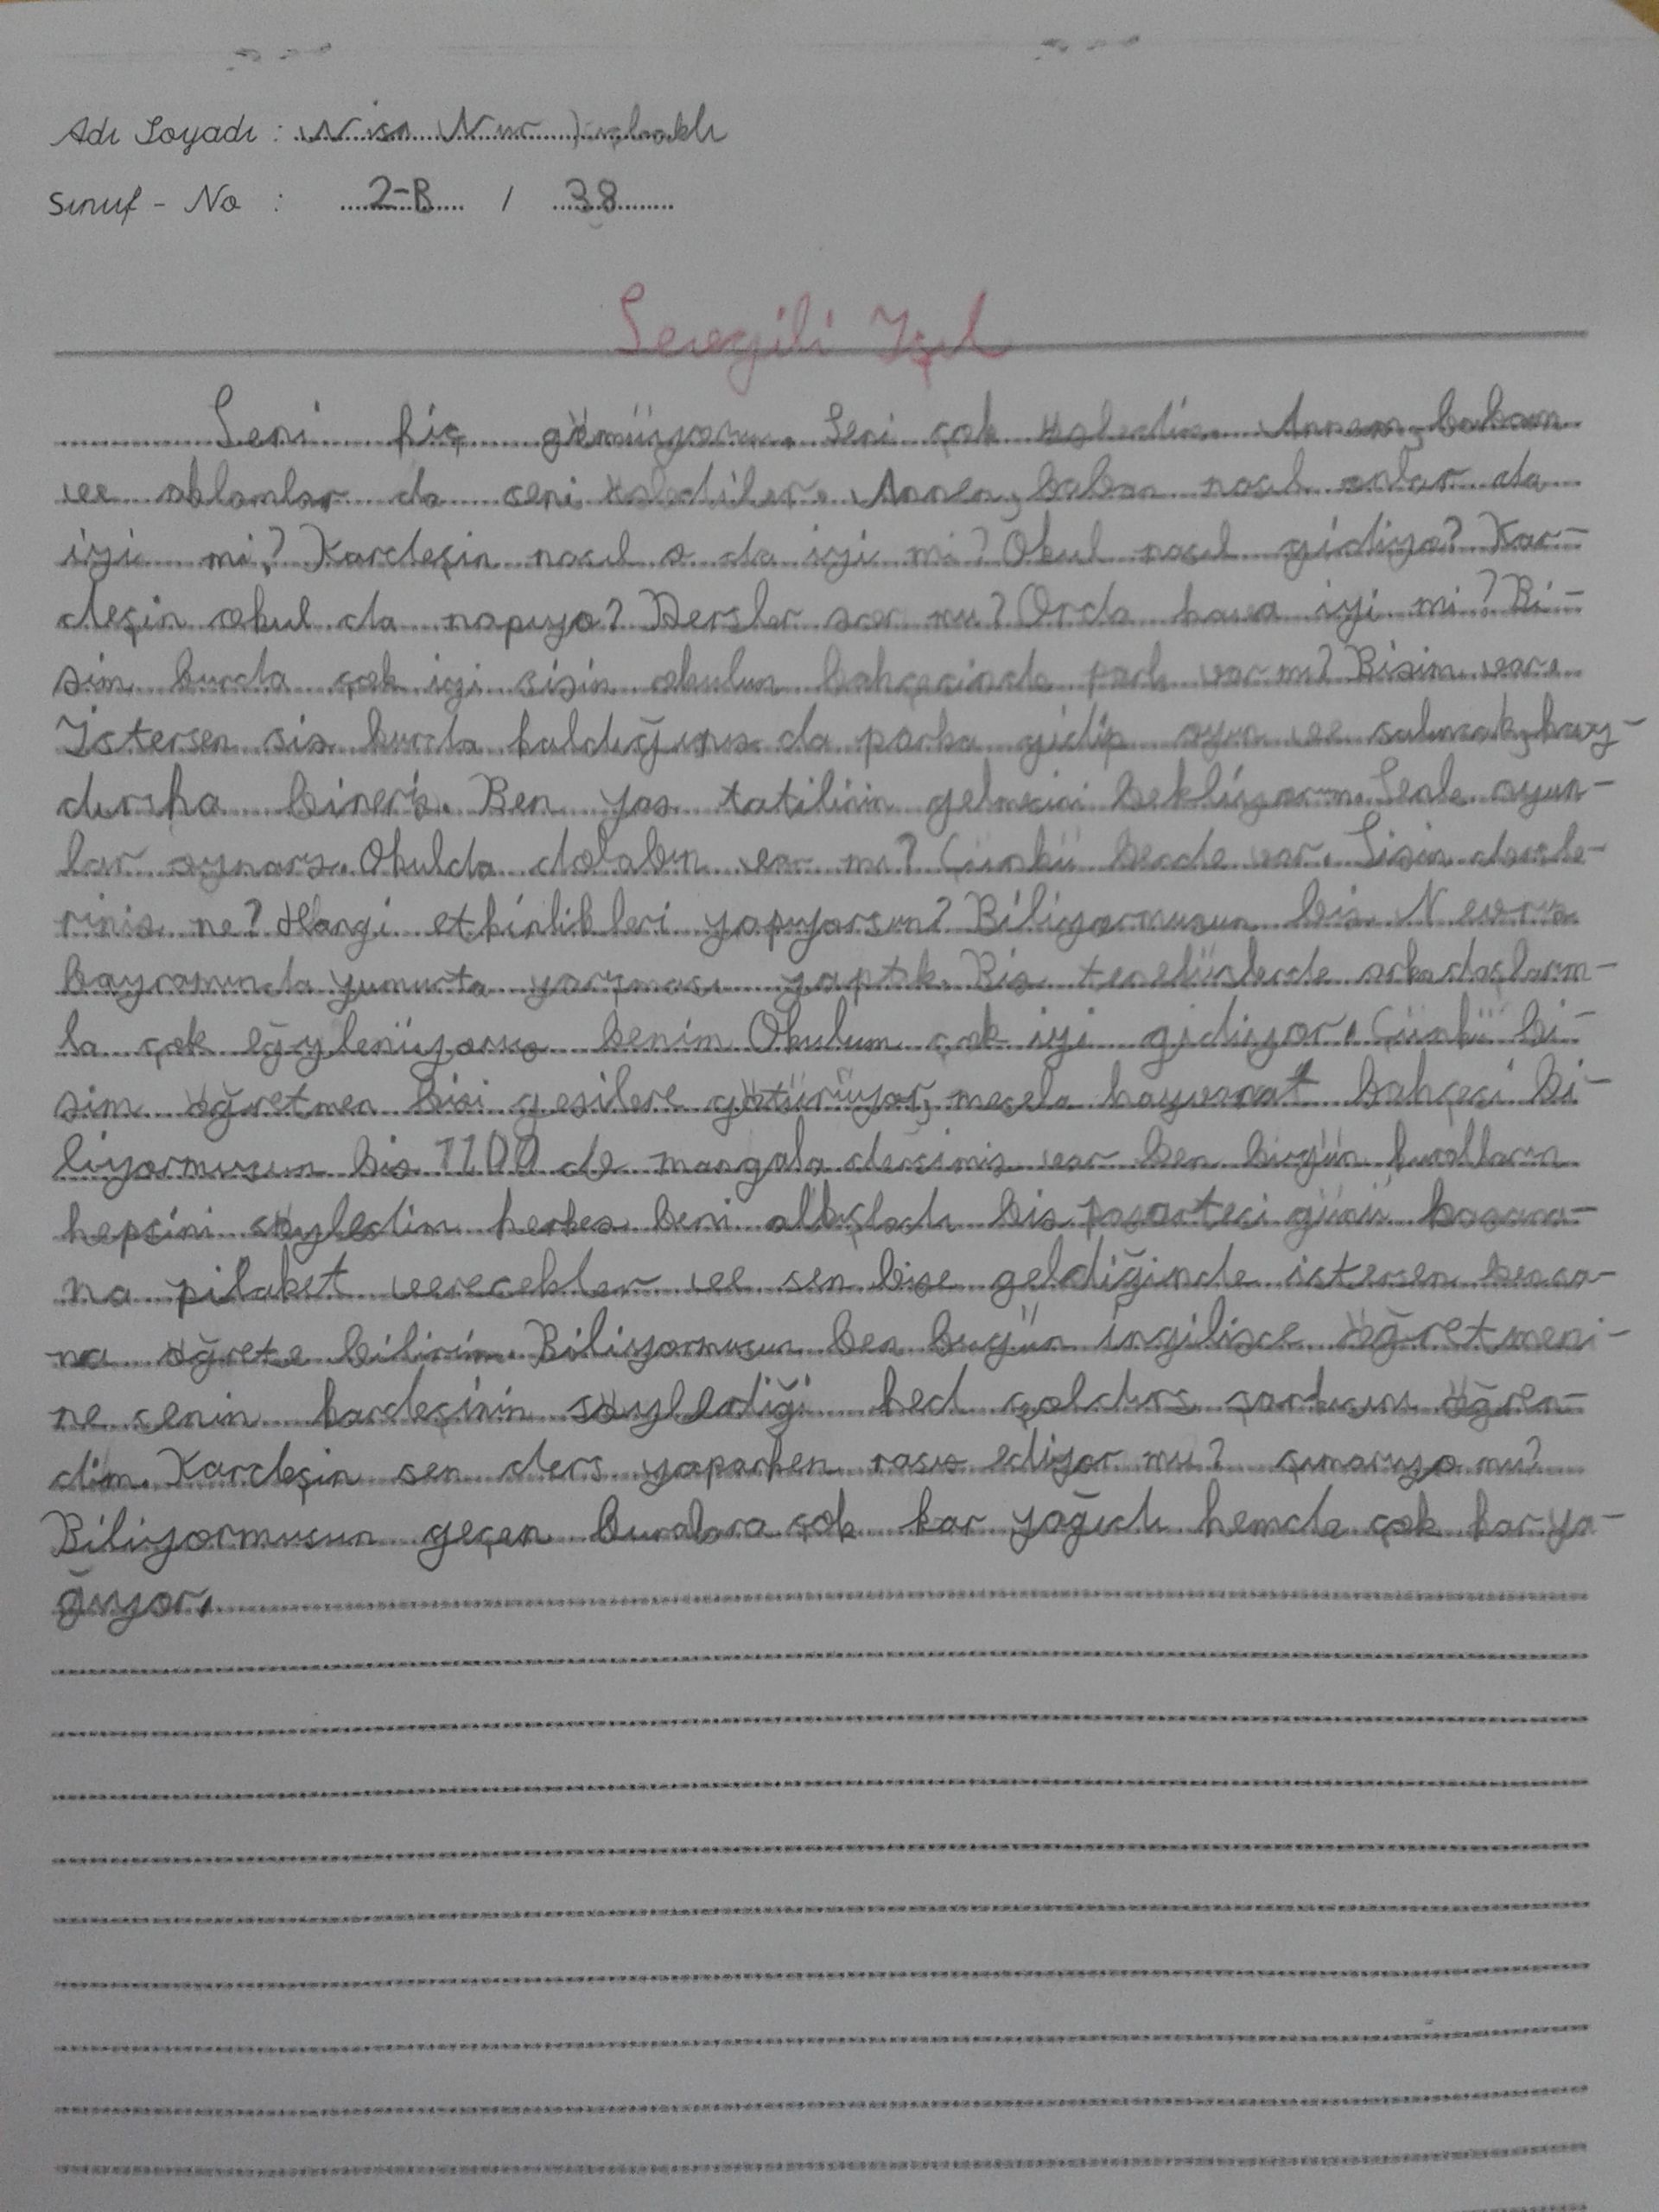 Adı Soyadı : Nisa Nur
Sınıf - No : 2-B / 38
Sevgili Işıl
Seni hiç gömüyorum. Seni çok özledim. Annem, babam
ve ablamlar da seni özlediler. Annen, baban nasıl onlar da
iyi mi? Kardeşin nasıl o da iyi mi? Okul nasıl gidiyo? Kar-
deşin okul da napıyo? Dersler zor mu? Orda hava iyi mi? Bi-
zim burda çok iyi sizin okulun bahçesinde park var mı? Bizim var.
İstersen siz burda kaldığınız da parka gidip oyun ve salıncak, kay-
dırska bineriz. Ben yaz tatilinin gelmesini bekliyorum. Senle oyun-
lar oynarız. Okulda dolabın var mı? Çünkü bende var. Sizin dersle-
riniz ne? Hangi etkinlikleri yapıyorsun? Biliyormusun biz Nevruz
bayramında yumurta yarışması yaptık. Biz tenefüslerde arkadaşlarım-
la çok eğyleniyoruz benim Okulum çok iyi gidiyor. Çünkü bi-
zim öğretmen bizi gezilere götürüyor, mesela hayvanat bahçesi bi-
liyormusun biz 1100 de mangala dersimiz var ben bugün kuralların
hepsini söyledim herkes beni alkışladı biz pazartesi günü kazana-
na pilaket verecekler ve sen bize geldiğinde istersen bensa-
na öğrete bilirim. Biliyormusun ben bugün ingilizce öğretmeni-
ne senin kardeşinin söylediği hed şoldırs şarkısını öğren-
dim. Kardeşin sen ders yaparken rasız ediyor mu? şımarıyo mu?
Biliyormusun geçen buralara çok kar yağdı hemde çok kar ya-
ğıyor.